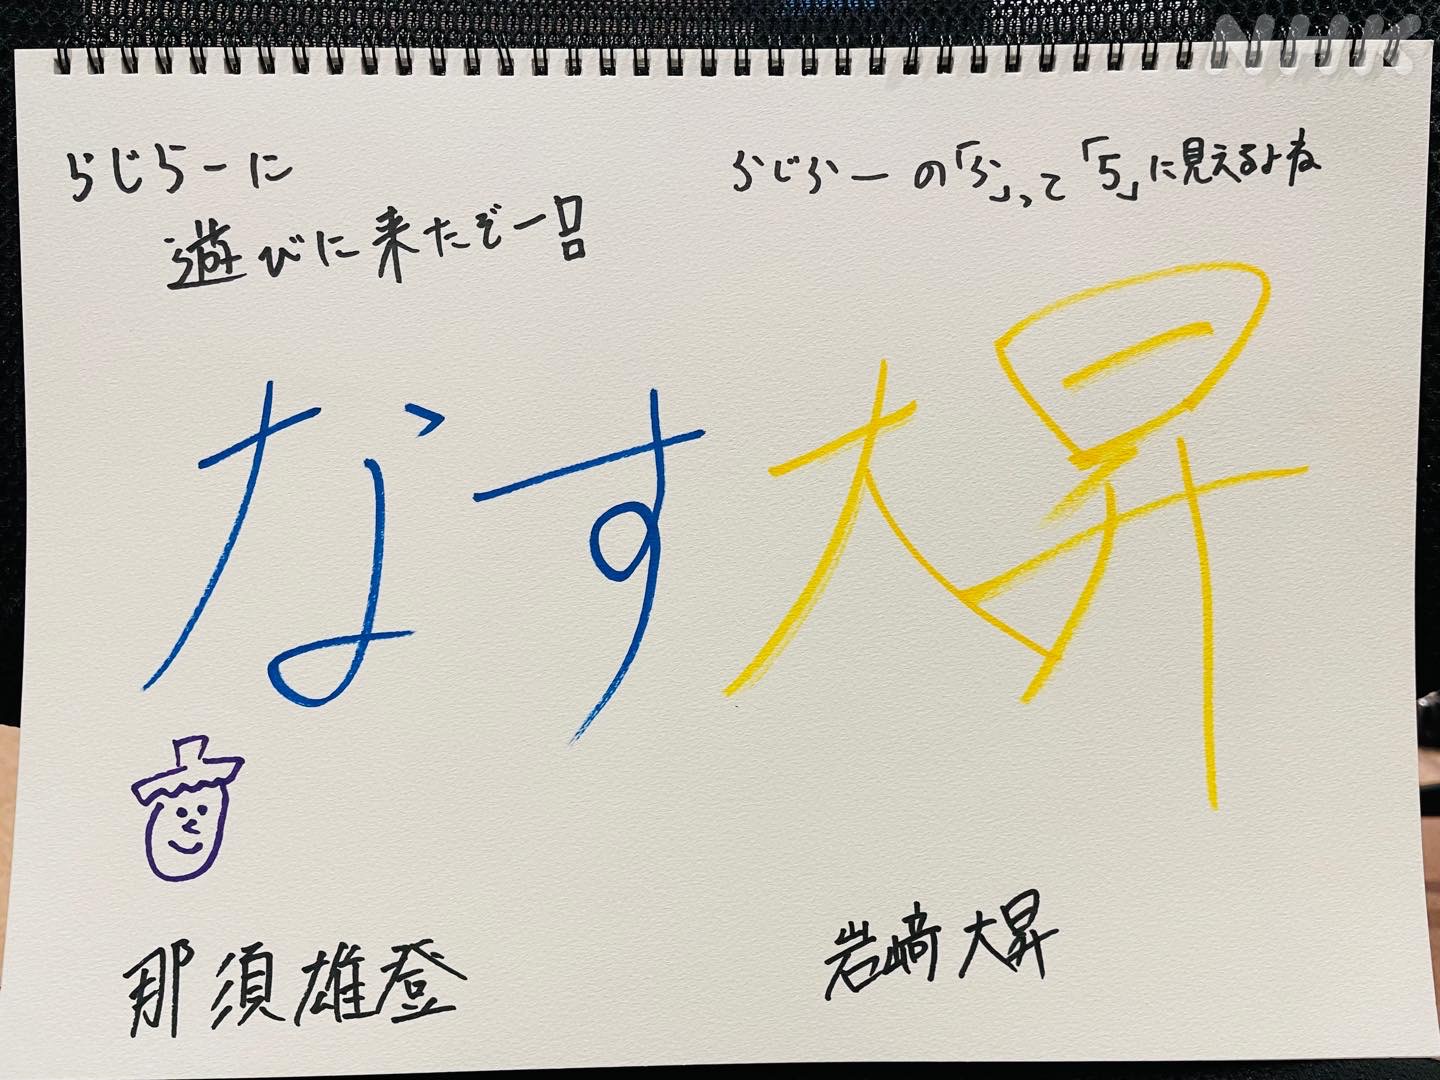 NHK
らじらーに
遊びに来たぞー!!
らじらーの「ら」って「5」に見えるよね
なす
大昇
那須雄登
岩﨑大昇